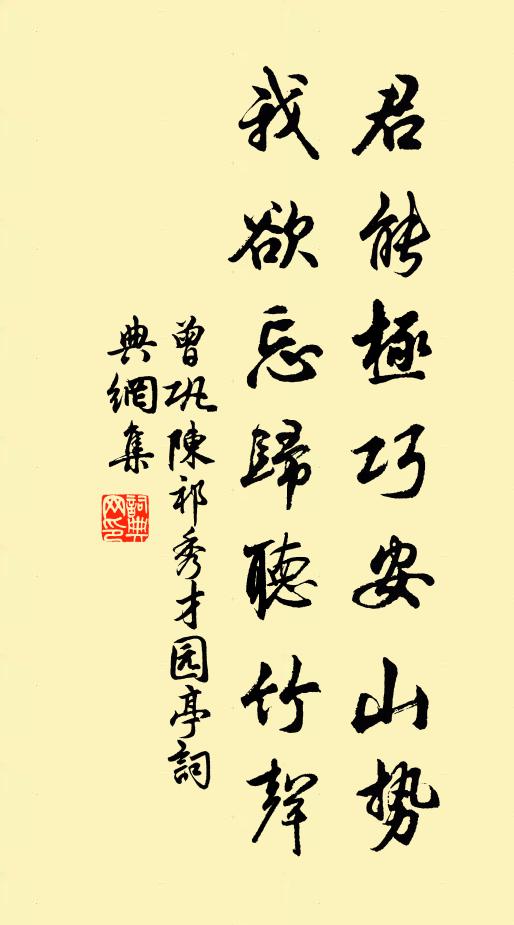 君能極巧安山勢
我欲忘歸聽竹聲
曾巩陳祁秀才园亭詞
典網集
詞典网印